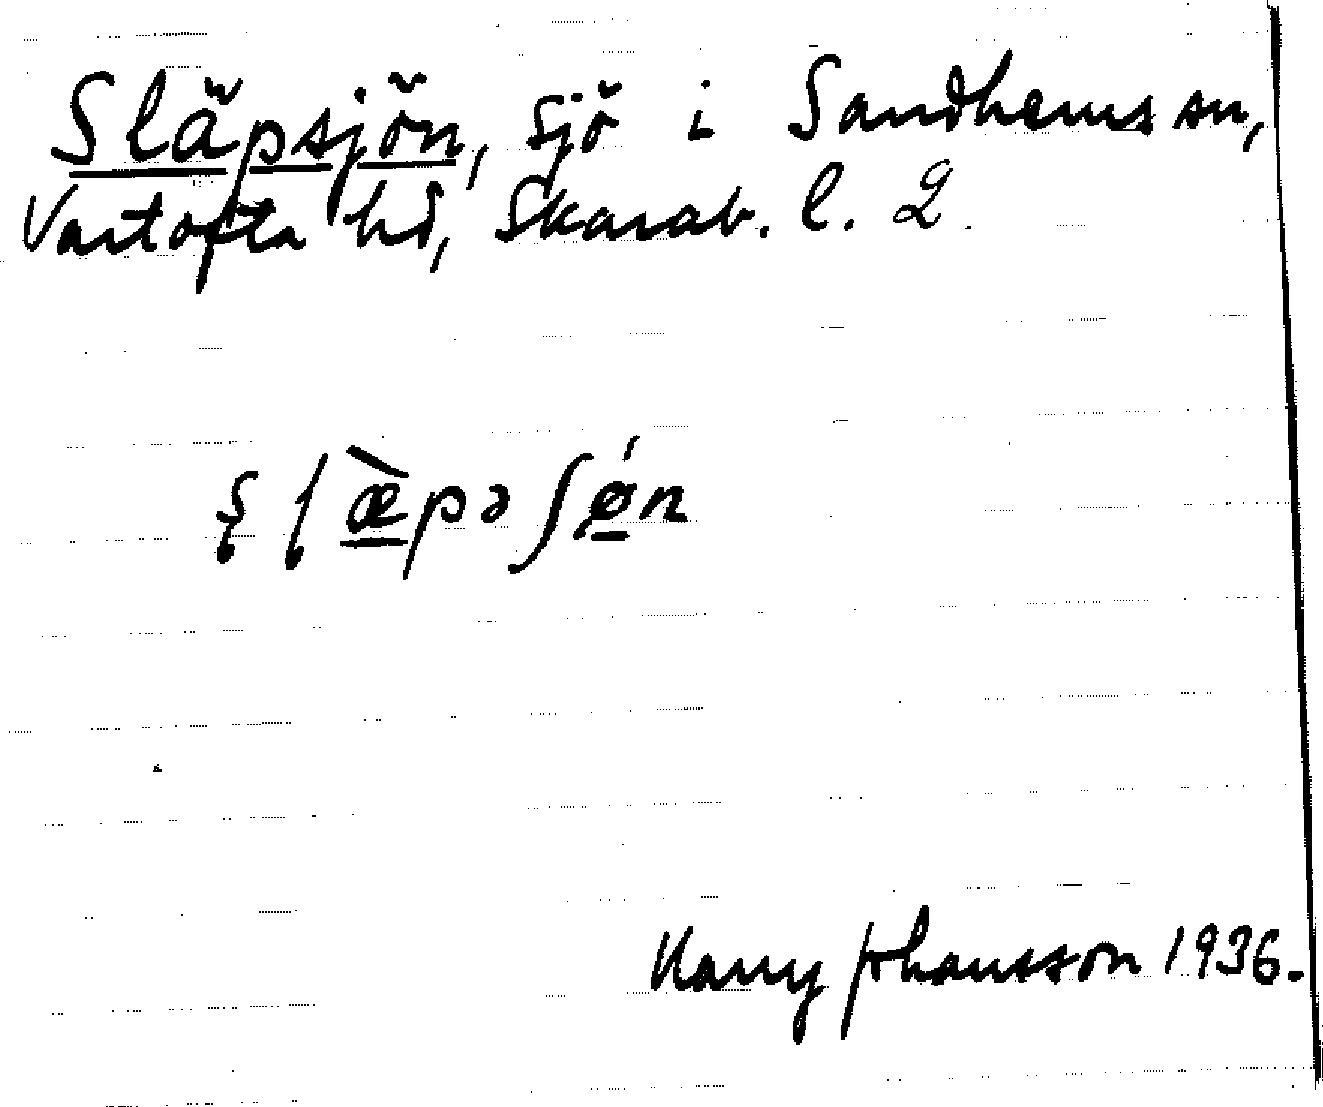 Släpsjön, sjö i Sandhems sn,
Vartofta hd, Skarab. l. 2
ʂɭæ̀pəʃǿn
Harry Johansson 1936.